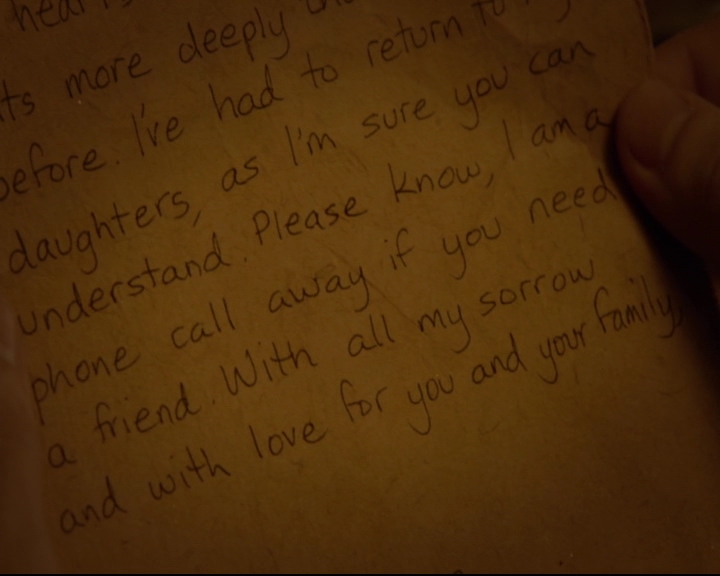 hear
ts more deeply
before. I've had to return to
daughters, as I'm sure you can
understand. Please know, I am a
phone call away if you need
a friend. With all my sorrow
and with love for you and your family,